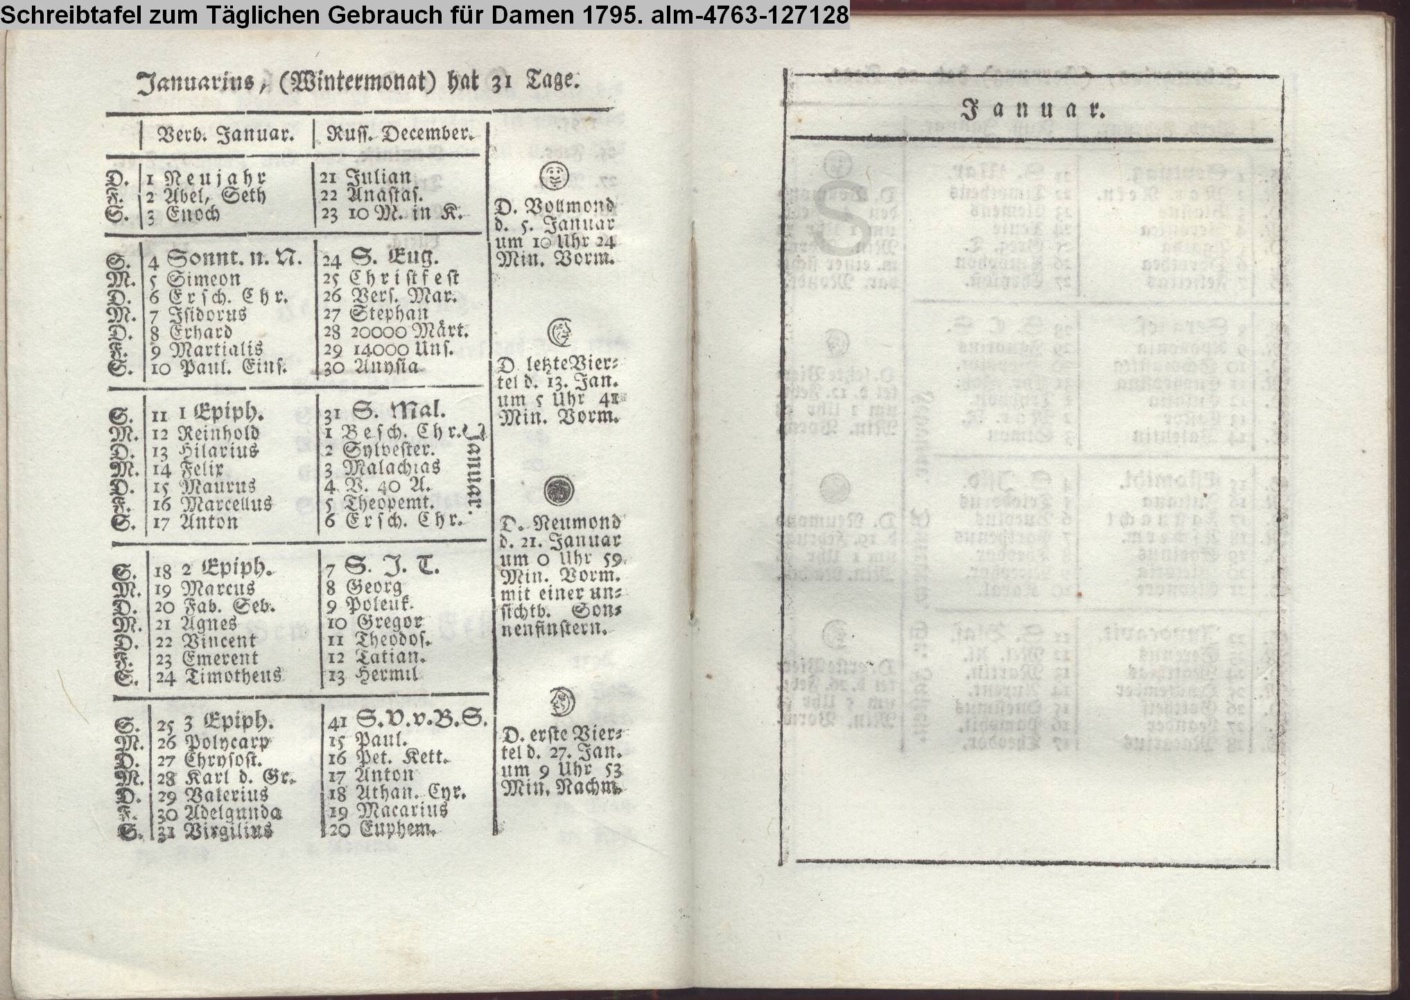 Schreibtafel zum Täglichen Gebrauch für Damen 1795. alm-4763-127128
Januarius, (Wintermonat) hat 31 Tage.
Verb. Januar. Russ. December.
D. 1 Neujahr 21 Julian
F. 2 Abel, Seth 22 Anastas.
S. 3 Enoch 23 10 M. in K.
S. 4 Sonnt. n. N. 24 S. Eug.
M. 5 Simeon 25 Christfest
D. 6 Ersch. Chr. 26 Vers. Mar.
M. 7 Isidorus 27 Stephan
D. 8 Erhard 28 20000 Märt.
F. 9 Martialis 29 14000 Uns.
S. 10 Paul. Eins. 30 Anysia
S. 11 1 Epiph. 31 S. Mal.
M. 12 Reinhold 1 Besch. Chr.
D. 13 Hilarius 2 Sylvester.
M. 14 Felix 3 Malachias
D. 15 Maurus 4 V. 40 A.
F. 16 Marcellus 5 Theopemt.
S. 17 Anton 6 Ersch. Chr.
Januar.
S. 18 2 Epiph. 7 S. J. T.
M. 19 Marcus 8 Georg
D. 20 Fab. Seb. 9 Poleuk.
M. 21 Agnes 10 Gregor
D. 22 Vincent 11 Theodos.
F. 23 Emerent 12 Tatian.
S. 24 Timotheus 13 Hermil
S. 25 3 Epiph. 41 S.V.v.B.S.
M. 26 Polycarp 15 Paul.
D. 27 Chrysost. 16 Pet. Kett.
M. 28 Karl d. Gr. 17 Anton
D. 29 Valerius 18 Athan. Cyr.
F. 30 Adelgunda 19 Macarius
S. 31 Virgilius 20 Euphem.
D. Vollmond
d. 5. Januar
um 10 Uhr 24
Min. Vorm.
D. letzte Vier-
tel d. 13. Jan.
um 5 Uhr 41
Min. Vorm.
D. Neumond
d. 21. Januar
um 0 Uhr 59.
Min. Vorm.
mit einer un-
sichtb. Son-
nenfinstern.
D. erste Vier-
tel d. 27. Jan.
um 9 Uhr 53
Min. Nachm.
Januar.